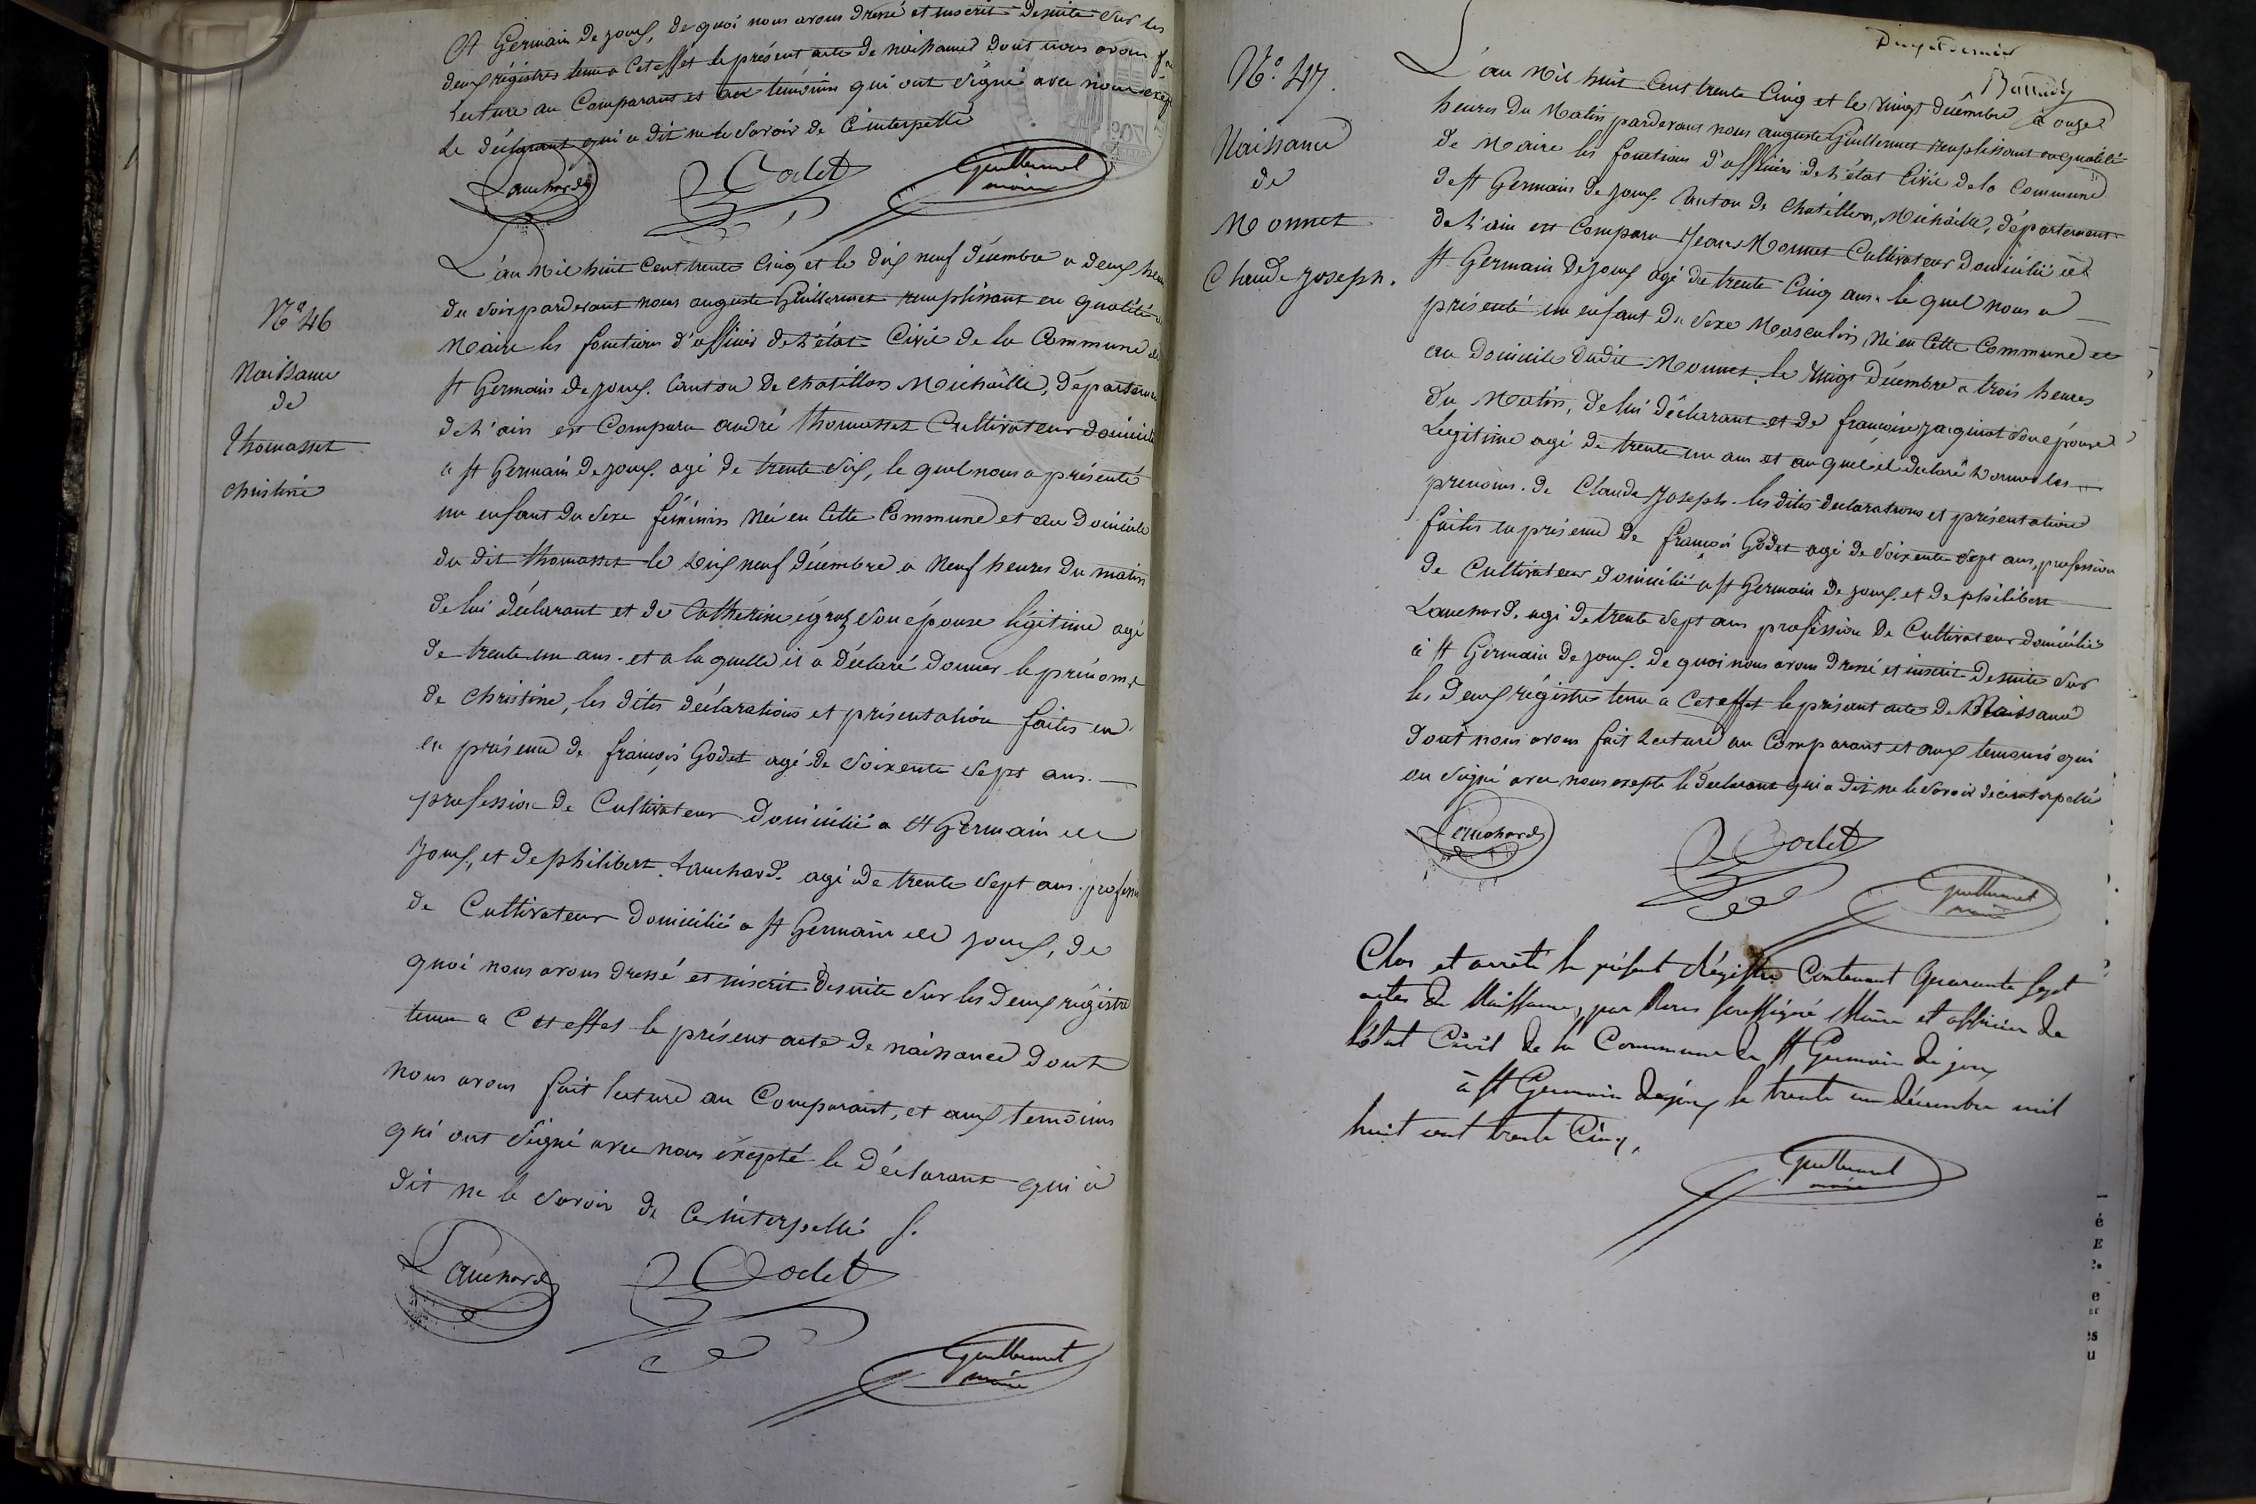 St Germain de joux, de quoi nous avons dressé et inscrit desuite sur les
deux régistres tenu a cet effet le présent acte de naissance dont nous avons
lecture au Comparant et aux témoins qui ont signé avec nous
le déclarant qui a dit ne le savoir de ce interpellé
Lauchard Godet Guillermet
maire
N° 46
Naissance
de
Thomasset
christine
L'an mil huit cent trente cinq et le dix neuf décembre a deux heures
du soir pardevant nous auguste Guillermet remplissant en qualité de
Maire les fonctions d'officier de l'état Civil de la Commune de
St Germain de joux. Canton de chatillon Michaille, départemen
de l'ain est Comparu andré thomasset Cultivateur domicilié
a St Germain de joux. agé de trente six, le quel nous a présenté
un enfant du sexe féminin Née en cette Commune et au Domicile
du dit thomasset le Dix neuf décembre a Neuf heures du matin
de lui déclarant et de Catherine égraz son épouse légitime agé
de trente un ans. et a la quelle il a déclaré donner le prénom
de christine, les dites déclarations et présentation faites en
en présence de françois Godet agé de Soixente Sept ans.
profession de Cultivateur Domicilié a St Germain de
Joux, et de philibert Lauchard. agé de trente Sept ans. profession
de Cultivateur Domicilié a St Germain de joux, de
quoi nous avons dressé et inscrit Desuite sur les deux régistre
tenu a Cet effet le présent acte de naissance dont
nous avons fait lecture au Comparant, et aux temoins
qui ont signé avec nous éxepté le Déclarant qui a
dit ne le savoir de ce interpellé
Lauchard Godet
Guillermet
maire
N° 47.
Naissance
de
Monnet
Claude Joseph.
L'an Mil huit Cent trente Cinq et le vingt décembre à onze
heures du Matin pardevant nous auguste Guillermet remplissant en qualité
de Maire les fonctions d'officier de l'état Civil de la Commune
de St Germain de joux. Canton de Chatillon, Michaille, département
de l'ain est Comparu Jean Monnet Cultivateur domicilié à
St Germain de joux agé de trente Cinq ans. le quel nous a
présenté un enfant du sexe Masculin, Né en Cette Commune et
au Domicile dudit Monnet, le Vingt Décembre a trois heures
du Matin, de lui déclarant et de françoise jaquinot son épouse
Legitime agé de trente un ans et au quel il declaré Donner les
prenoms. de Claude Joseph. les dites declarations et présentation
faites en présence de françois Godet agé de Soixente Sept ans, profession
de Cultivateur domicilié a St Germain de joux. et de philibert
Lauchard. agé de trente sept ans profession de Cultivateur domicilié
à St Germain de joux. de quoi nous avons dressé et inscrit Desuite sur
les deux régistre tenu a Cet effet le présent acte de Naissance
dont nous avons fait lecture au Comparant et aux temoins qui
on signé avec nous exepte le declarant qui a dit ne le savoir de ce interpellé
Lauchard Godet
Guillermet
maire
Clos et arrêté le présent Régistre Contenant Quarante Sept
actes de Naissance, par Nous soussigné Maire et officier de
l'état Civil de la Commune de St Germain de joux
à St Germain de joux le trente un décembre mil
huit cent trente Cinq.
Guillermet
maire